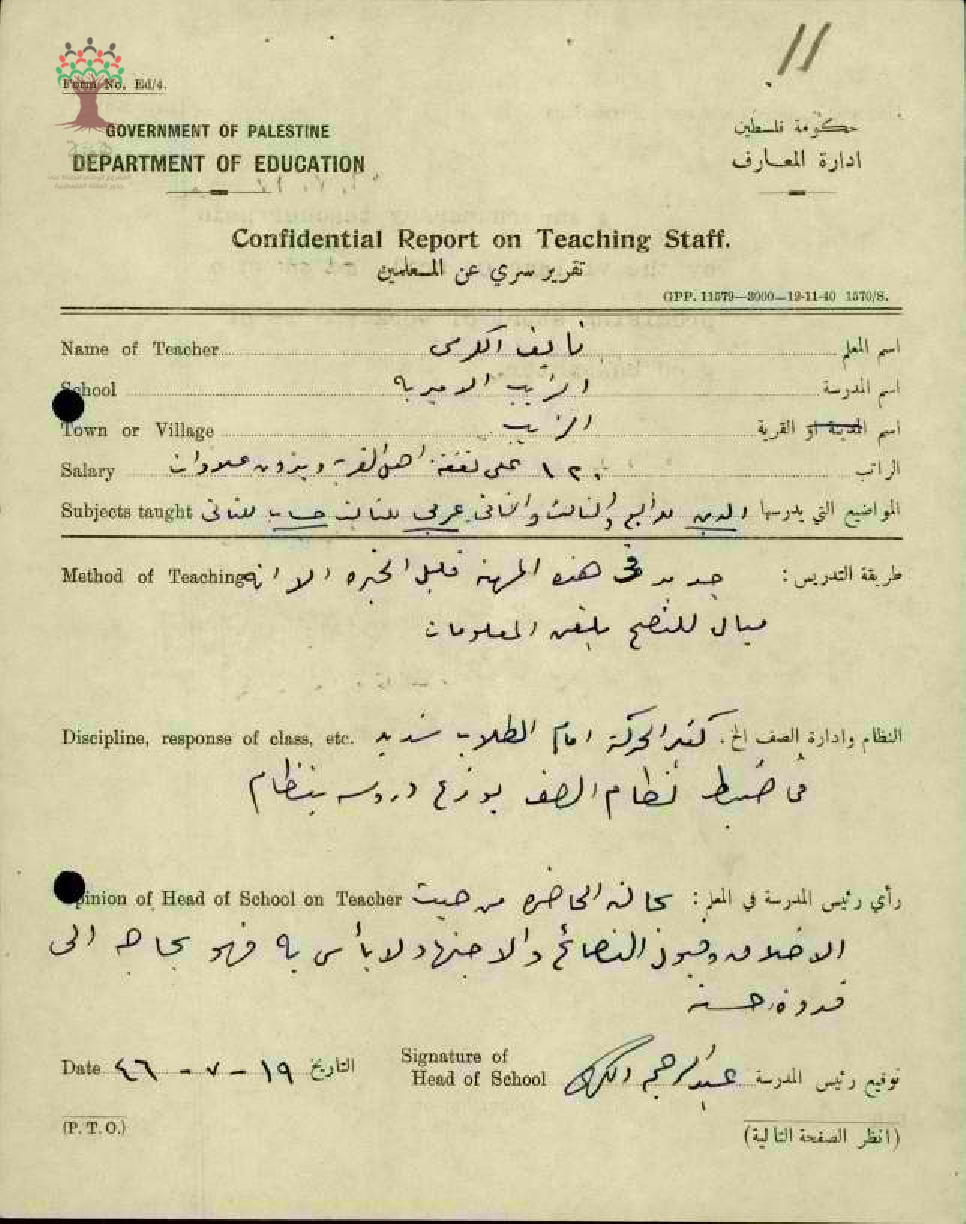 11
Form No. Ed/4.
GOVERNMENT OF PALESTINE
حكومة فلسطين
DEPARTMENT OF EDUCATION
ادارة المعارف
Confidential Report on Teaching Staff.
تقرير سري عن المعلمين
GPP. 11579—3000—19-11-40 1570/S.
Name of Teacher نايف الكرمي اسم المعلم
School الزيب الاميرية اسم المدرسة
Town or Village الزيب اسم المدينة او القرية
Salary ١٢ على نفقة اهل القرية وبدون علاوات الراتب
Subjects taught الدين للرابع والثالث والثاني عربي للثالث حساب للثاني المواضيع التي يدرسها
Method of Teaching جديد في هذه المهنة قليل الخبره الا انه طريقة التدريس :
ميال للنصح يلقن المعلومات
Discipline, response of class, etc. كثير الحركة امام الطلاب شديد النظام وادارة الصف الخ.
في ضبط نظام الصف يوزع دروسه بنظام
Opinion of Head of School on Teacher بحالته الحاضره من حيث رأي رئيس المدرسة في المعلم :
الاخلاق وقبول النصائح والاجتهاد لا بأس به فهو بحاجه الى
قدوة حسنه
Date ١٩ - ٧ - ٤٦ التاريخ
Signature of Head of School عبد الرحيم توقيع رئيس المدرسة
(P. T. O.)
(انظر الصفحة التالية)